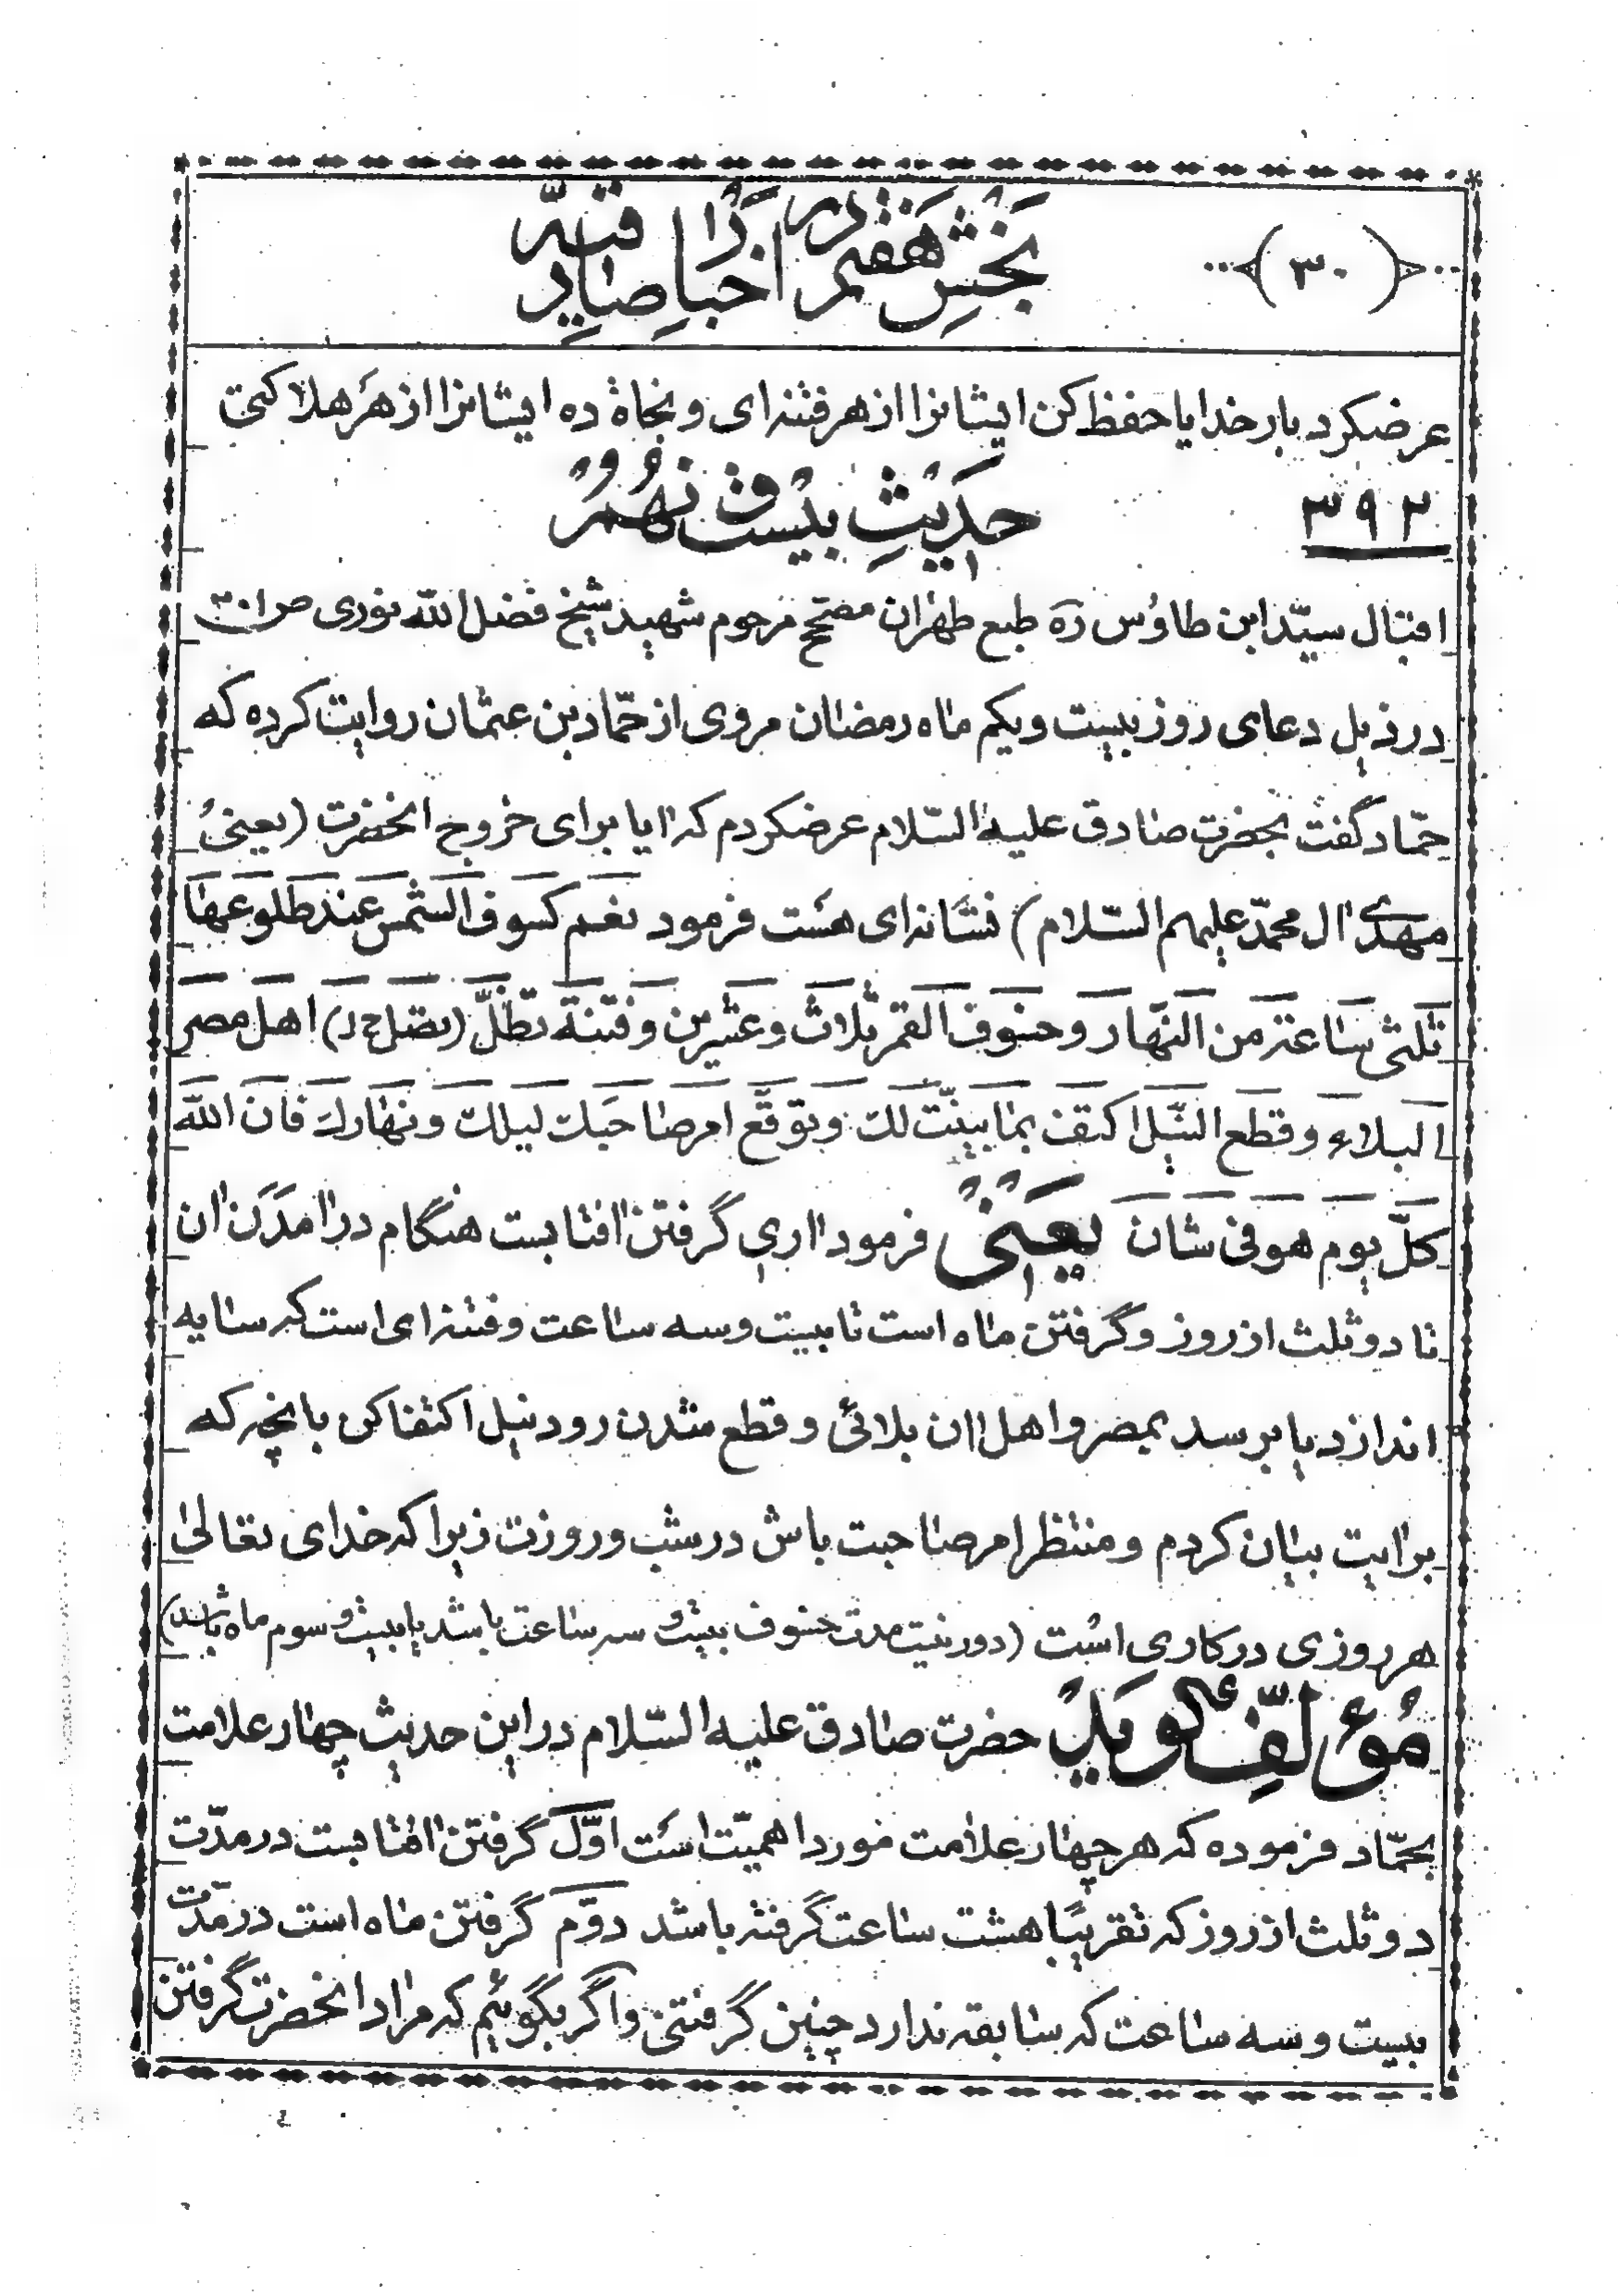 بخش هفتم در اخبار صادقیه
(۳۰)
عرضکرد بار خدایا حفظ کن ایشانرا از هر فتنه‌ای و نجاة ده ایشانرا از هر هلاکتی
۳۹۲ حدیث بیست و نهم
اقبال سیّد ابن طاوُس ره طبع طهران مصحّح مرحوم شهید شیخ فضل الله نوری ص
در ذیل دعای روز بیست و یکم ماه رمضان مروی از حمّاد بن عثمان روایت کرده که
حمّاد گفت بحضرت صادق علیه السّلام عرضکردم که ایا برای خروج انحضرت (یعنی
مهدی ال محمّد علیهم السّلام) نشانه‌ای هست فرمود نعم کسوف الشمس عند طلوعها
ثلثی ساعة من النّهار و خسوف القمر ثلاث و عشرین و فتنة تظلّ (تصل خ د) اهل مصر
البلاء و قطع النّیل اکتف بما بیّنت لک و توقّع امر صاحبک لیلک و نهارک فان الله
کلّ یوم هو فی شان یعنی فرمود اری گرفتن افتابست هنگام در امدن ان
تا دو ثلث از روز و گرفتن ماه است تا بیست و سه ساعت و فتنه‌ای است که سایه
اندازد یا برسد بمصر و اهل ان بلائی و قطع شدن رود نیل اکتفا کن بانچه که
برایت بیان کردم و منتظر امر صاحبت باش در شب و روزت زیرا که خدای تعالی
هر روزی در کاری است (دور نیست مدت خسوف بیست و سه ساعت باشد یا بیست و سوم ماه باشد)
مؤلّف گوید حضرت صادق علیه السّلام در این حدیث چهار علامت
بحمّاد فرموده که هر چهار علامت مورد اهمیّت است اوّل گرفتن افتابست در مدّت
دو ثلث از روز که تقریبًا هشت ساعت گرفته باشد دوّم گرفتن ماه است در مدّت
بیست و سه ساعت که سابقه ندارد چنین گرفتنی و اگر بگوئیم که مراد انحضرت گرفتن